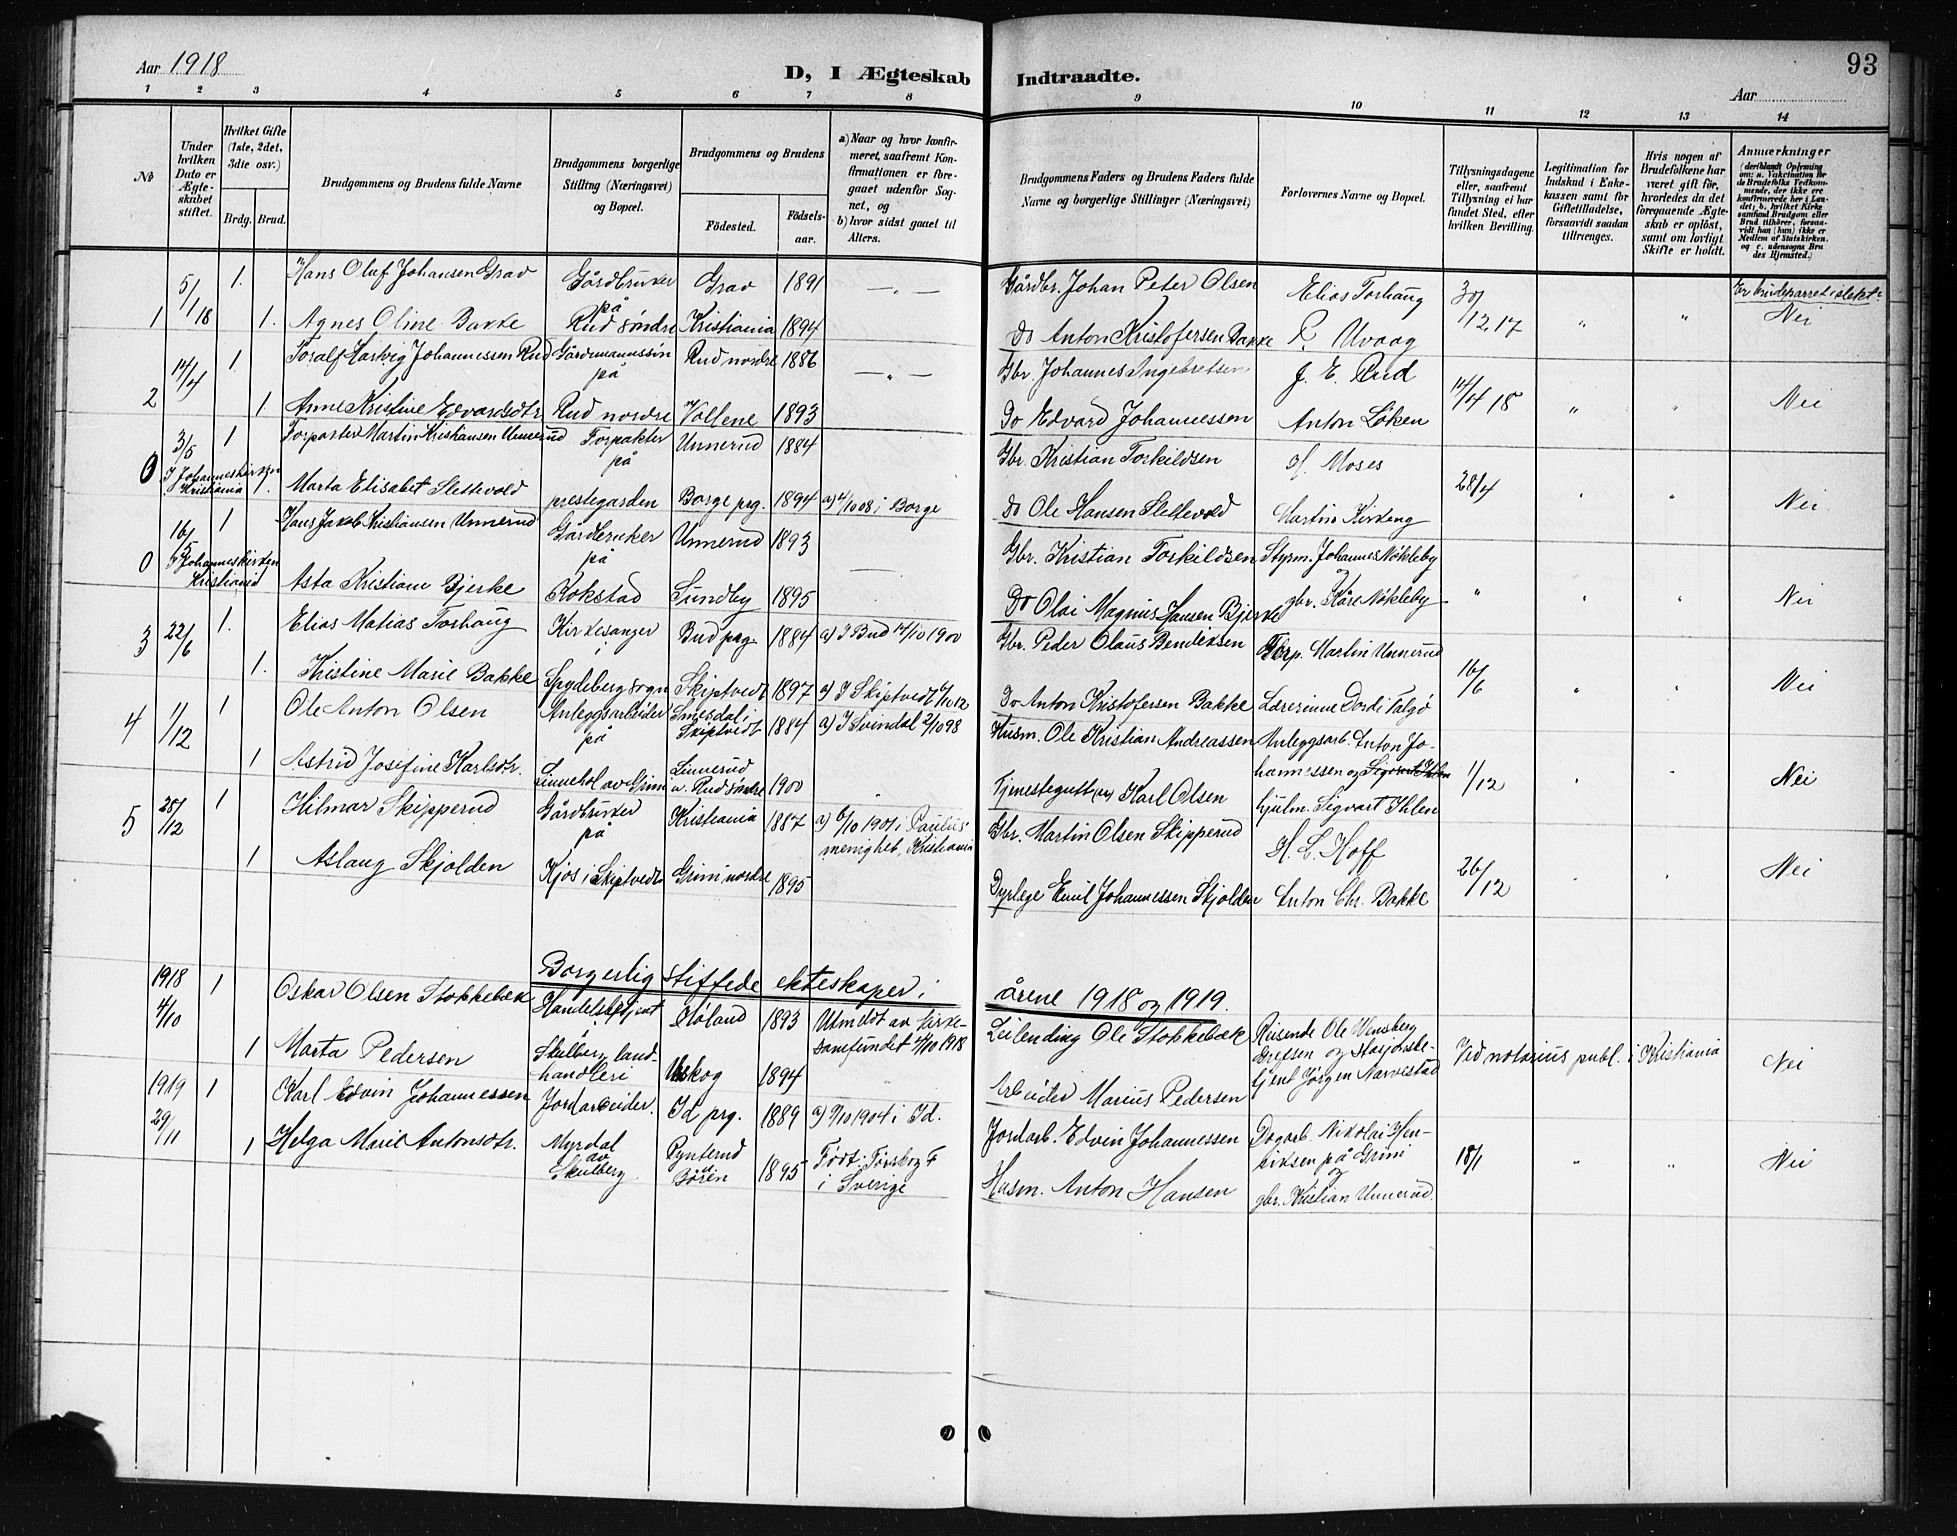 Aar 1918
D, I Ægteskab Indtraadte.
93
Aar
1 2 3 4 5 6 7 8 9 10 11 12 13 14
No
Under hvilken Dato er Ægteskabet stiftet.
Hvilket Gifte (1ste, 2det, 3die osv.)
Brdg. Brud.
Brudgommens og Brudens fulde Navne
Brudgommens borgerlige Stilling (Næringsvei) og Bopæl.
Brudgommens og Brudens
Fødested.
Fødselsaar.
a) Naar og hvor konfirmeret, saafremt Konfirmationen er foregaaet udenfor Sognet, og
b) hvor sidst gaaet til Alters.
Brudgommens Faders og Brudens Faders fulde Navne og borgerlige Stillinger (Næringsvei)
Forlovernes Navne og Bopæl.
Tillysningsdagene eller, saafremt Tillysning ei har fundet Sted, efter hvilken Bevilling.
Legitimation for Indskud i Enkekassen samt for Giftetilladelse, forsaavidt saadan tiltrænges.
Hvis nogen af Brudefolkene har været gift før, hvorledes da det foregaaende Ægteskab er opløst, samt om lovligt Skifte er holdt.
Anmærkninger
(deriblandt Oplysning om: a. Vaccination for de Brudefolks Vedkommende, der ikke ere konfirmerede her i Landet; b. hvilket Kirkesamfund Brudgom eller Brud tilhører, forsaavidt han (hun) ikke er Medlem af Statskirken, og c. udensogns Brudes Hjemsted.)
1 5/1 18 1. Hans Oluf Johansen Grav Gårdbruker på Grav 1891 — „ — Gårdbr. Johan Peter Olsen Elias Torhaug 30/12 17 Er brudeparret i slekt?
1. Agnes Oline Bakke Rud søndre Kristiania 1894 Do Anton Kristofersen Bakke P. Uvaag „ „ Nei
2 14/4 1 Toralf Hartvig Johannessen Rud Gårdmannssøn på Rud nordre 1886 — „ — Gbr. Johannes Ingebretsen J. E. Rud 14/4 18
1 Anne Kristine Edvardsdtr Rud nordre Vollene 1893 Do Edvard Johannessen Anton Løken „ „ Nei
0 3/5 1 Forpakter Martin Kristiansen Unnerud Forpakter på Unnerud 1884 Gbr. Kristian Torkildsen H. Moses 28/4
I Johanneskirken Kristiania 1. Marta Elisabet Slettevold prestegarden Borge prg. 1894 a) 4/10 08 i Borge Do Ole Hansen Slettevold Martin Kirkeng Nei
0 16/5 1 Hans Jakob Kristiansen Unnerud Gårdbruker på Unnerud 1893 — Gbr. Kristian Torkildsen Styrm. Johannes Nøkleby
i Johanneskirken Kristiania Asta Kristiane Bjerke Kokstad Sundby 1895 Do Olai Magnus Hansen Bjerke og gbr. Kåre Nøkleby „ „ „ Nei
3 22/6 1. Elias Matias Torhaug Kirkesanger i Bud prg 1884 a) I Bud 14/10 1900 Gbr. Peder Olaus Bendiksen Forp. Martin Unnerud 16/6
1. Kristine Marie Bakke Spydeberg sogn Skiptvedt 1897 a) I Skiptvedt 6/10 12 Do Anton Kristofersen Bakke Lærerinne Dordi Talgø „ „ Nei
4 1/12 1 Ole Anton Olsen Anleggsarbeider på Smesdal i Skiptvedt 1884 a) I Svindal 2/10 98 Husm. Ole Kristian Andreassen Anleggsarb. Anton Jo-
1 Astrid Josefine Karlsdtr. Linnehol av Grini Linnerud u. Rud søndre 1900 Tjenestegutt Karl Olsen hannessen og Sigvart Ihlen 1/12 Nei
hjulm. Sigvart Ihlen
5 28/12 1 Hilmar Skipperud Gårdbruker på Kristiania 1887 a) 6/10 1901 i Paulus menighet, Kristiania Gbr. Martin Olsen Skipperud H. L. Hoff 26/12
1 Aslaug Skjolden Kjos i Skiptvedt Grini nordre 1895 Dyrlæge Emil Johannessen Skjolden Anton Chr. Bakke Nei
Borgerlig stiftede ekteskaper i årene 1918 og 1919.
1918 4/10 1 Oskar Olsen Stokkebæk Handelsbetjent Høland 1893 Utmeldt av kirkesamfundet 2/10 1918 Leilending Ole Stokkebæk Reisende Ole Wensberg
1 Marta Pedersen Skulberg landhandleri Uskog 1894 Arbeider Marius Pedersen og Stasjonsbetjent Jørgen Narvestad Ved notarius publ. i Kristiania Nei
1919 29/11 1 Karl Edvin Johannessen Jordarbeider. Id prg. 1889 a) 9/10 1904 i Id. Jordarb. Edvin Johannessen Dagarb. Nikolai Hen-
1 Helga Marie Antonsdtr. Myrdal av Skulberg Pynterud u Børen 1895 Født i Tørskog F i Sverige Husm. Anton Hansen riksen på Grini og gbr. Kristian Unnerud. 18/1 „ „ Nei